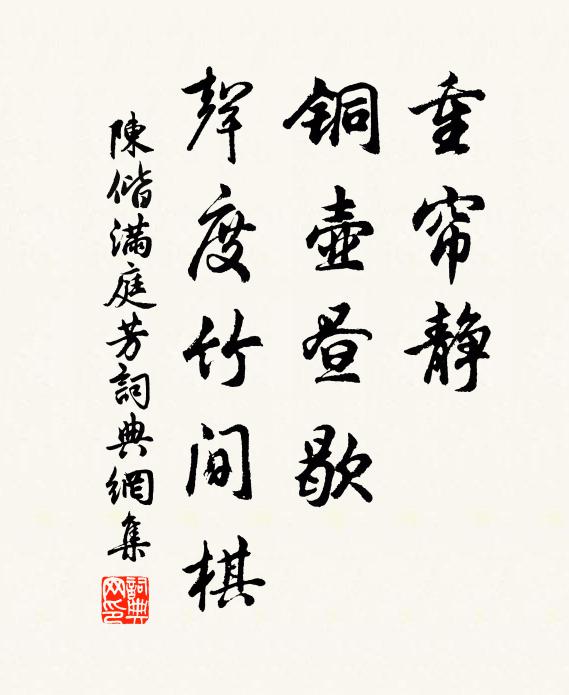 重帘静
铜壶昼歇
声度竹间棋
陳偕满庭芳詞典網集
詞典网印